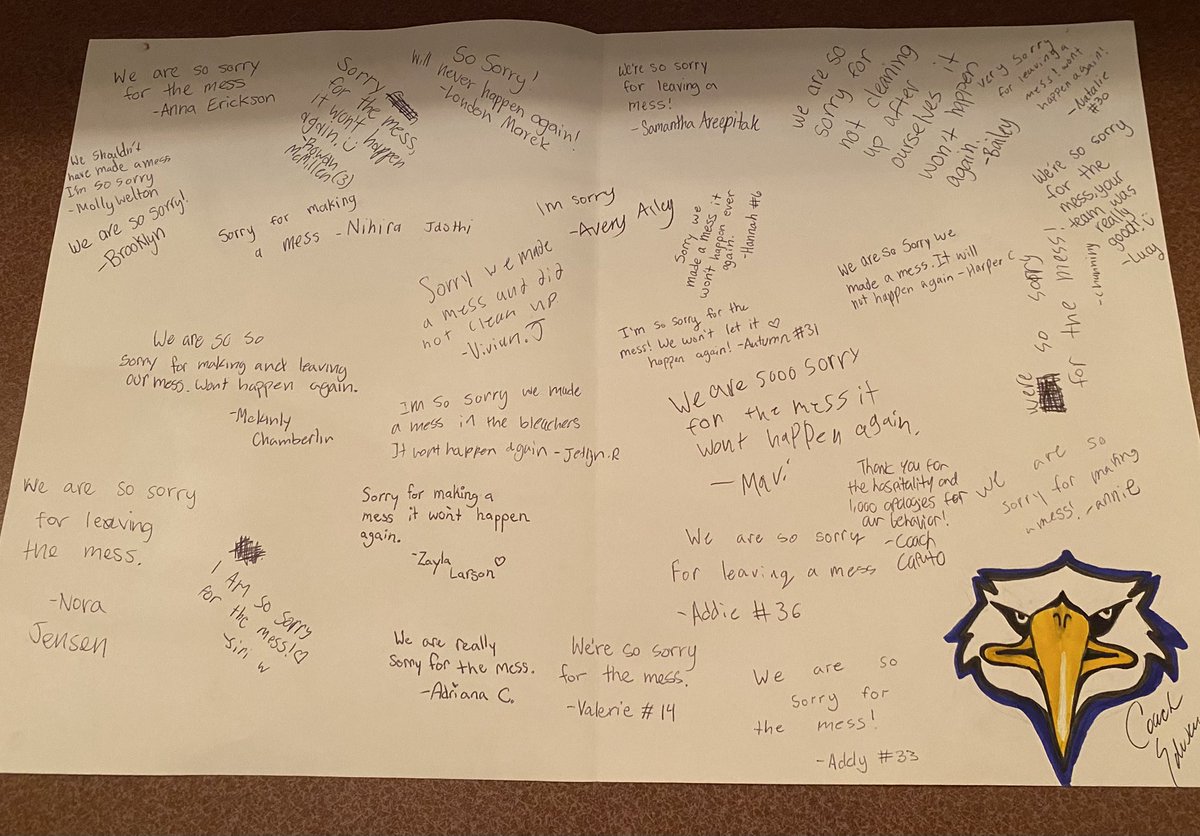 We are so sorry
for the mess
-Anna Erickson
Sorry
for the mess,
it wont happen
again.
-Rowan
McMillen(3)
So Sorry!
Will never happen again!
-London Marek
We're so sorry
for leaving a
mess!
-Samantha Areepitak
we are so
sorry for
not cleaning
up after
ourselves it
won't happen
again.
-Bailey
very sorry
for leaving a
mess! wont
happen again!
-Natalie
#30
We shouldn't
have made a mess
I'm so sorry
-Molly Welton
We are so sorry!
-Brooklyn
Sorry for making
a mess -Nihira Jdothi
Im sorry
-Avery Ailey
Sorry we
made a mess it
wont happen ever
again.
-Hannah #6
We're so sorry
for the
mess, your
team was
really
good!
-Lucy
We are so sorry we
made a mess. It will
not happen again -Harper C
were so sorry
for the mess!
-channing
Sorry we made
a mess and did
not clean up
-Vivian.J
I'm so sorry for the
mess! We won't let it
happen again! -Autumn #31
We are so so
sorry for making and leaving
our mess. Wont happen again.
-Mckinly
Chamberlin
Im so sorry we made
a mess in the bleachers
It wont happen again -Jetlyn.R
We are sooo sorry
for the mess it
wont happen again.
-Mavi
Thank you for
the hospitality and
1,000 apologies for
our behavior!
-Coach
Caputo
We are so
sorry for making
a mess! -annie
We are so sorry
for leaving
the mess.
-Nora
Jensen
I AM so sorry
for the mess!
Jiri w
Sorry for making a
mess it won't happen
again.
-Zayla
Larson
We are so sorry
For leaving a mess
-Addie #36
We are really
sorry for the mess.
-Adriana C.
We're so sorry
for the mess.
-Valerie #14
We are so
sorry for
the mess!
-Addy #33
Coach